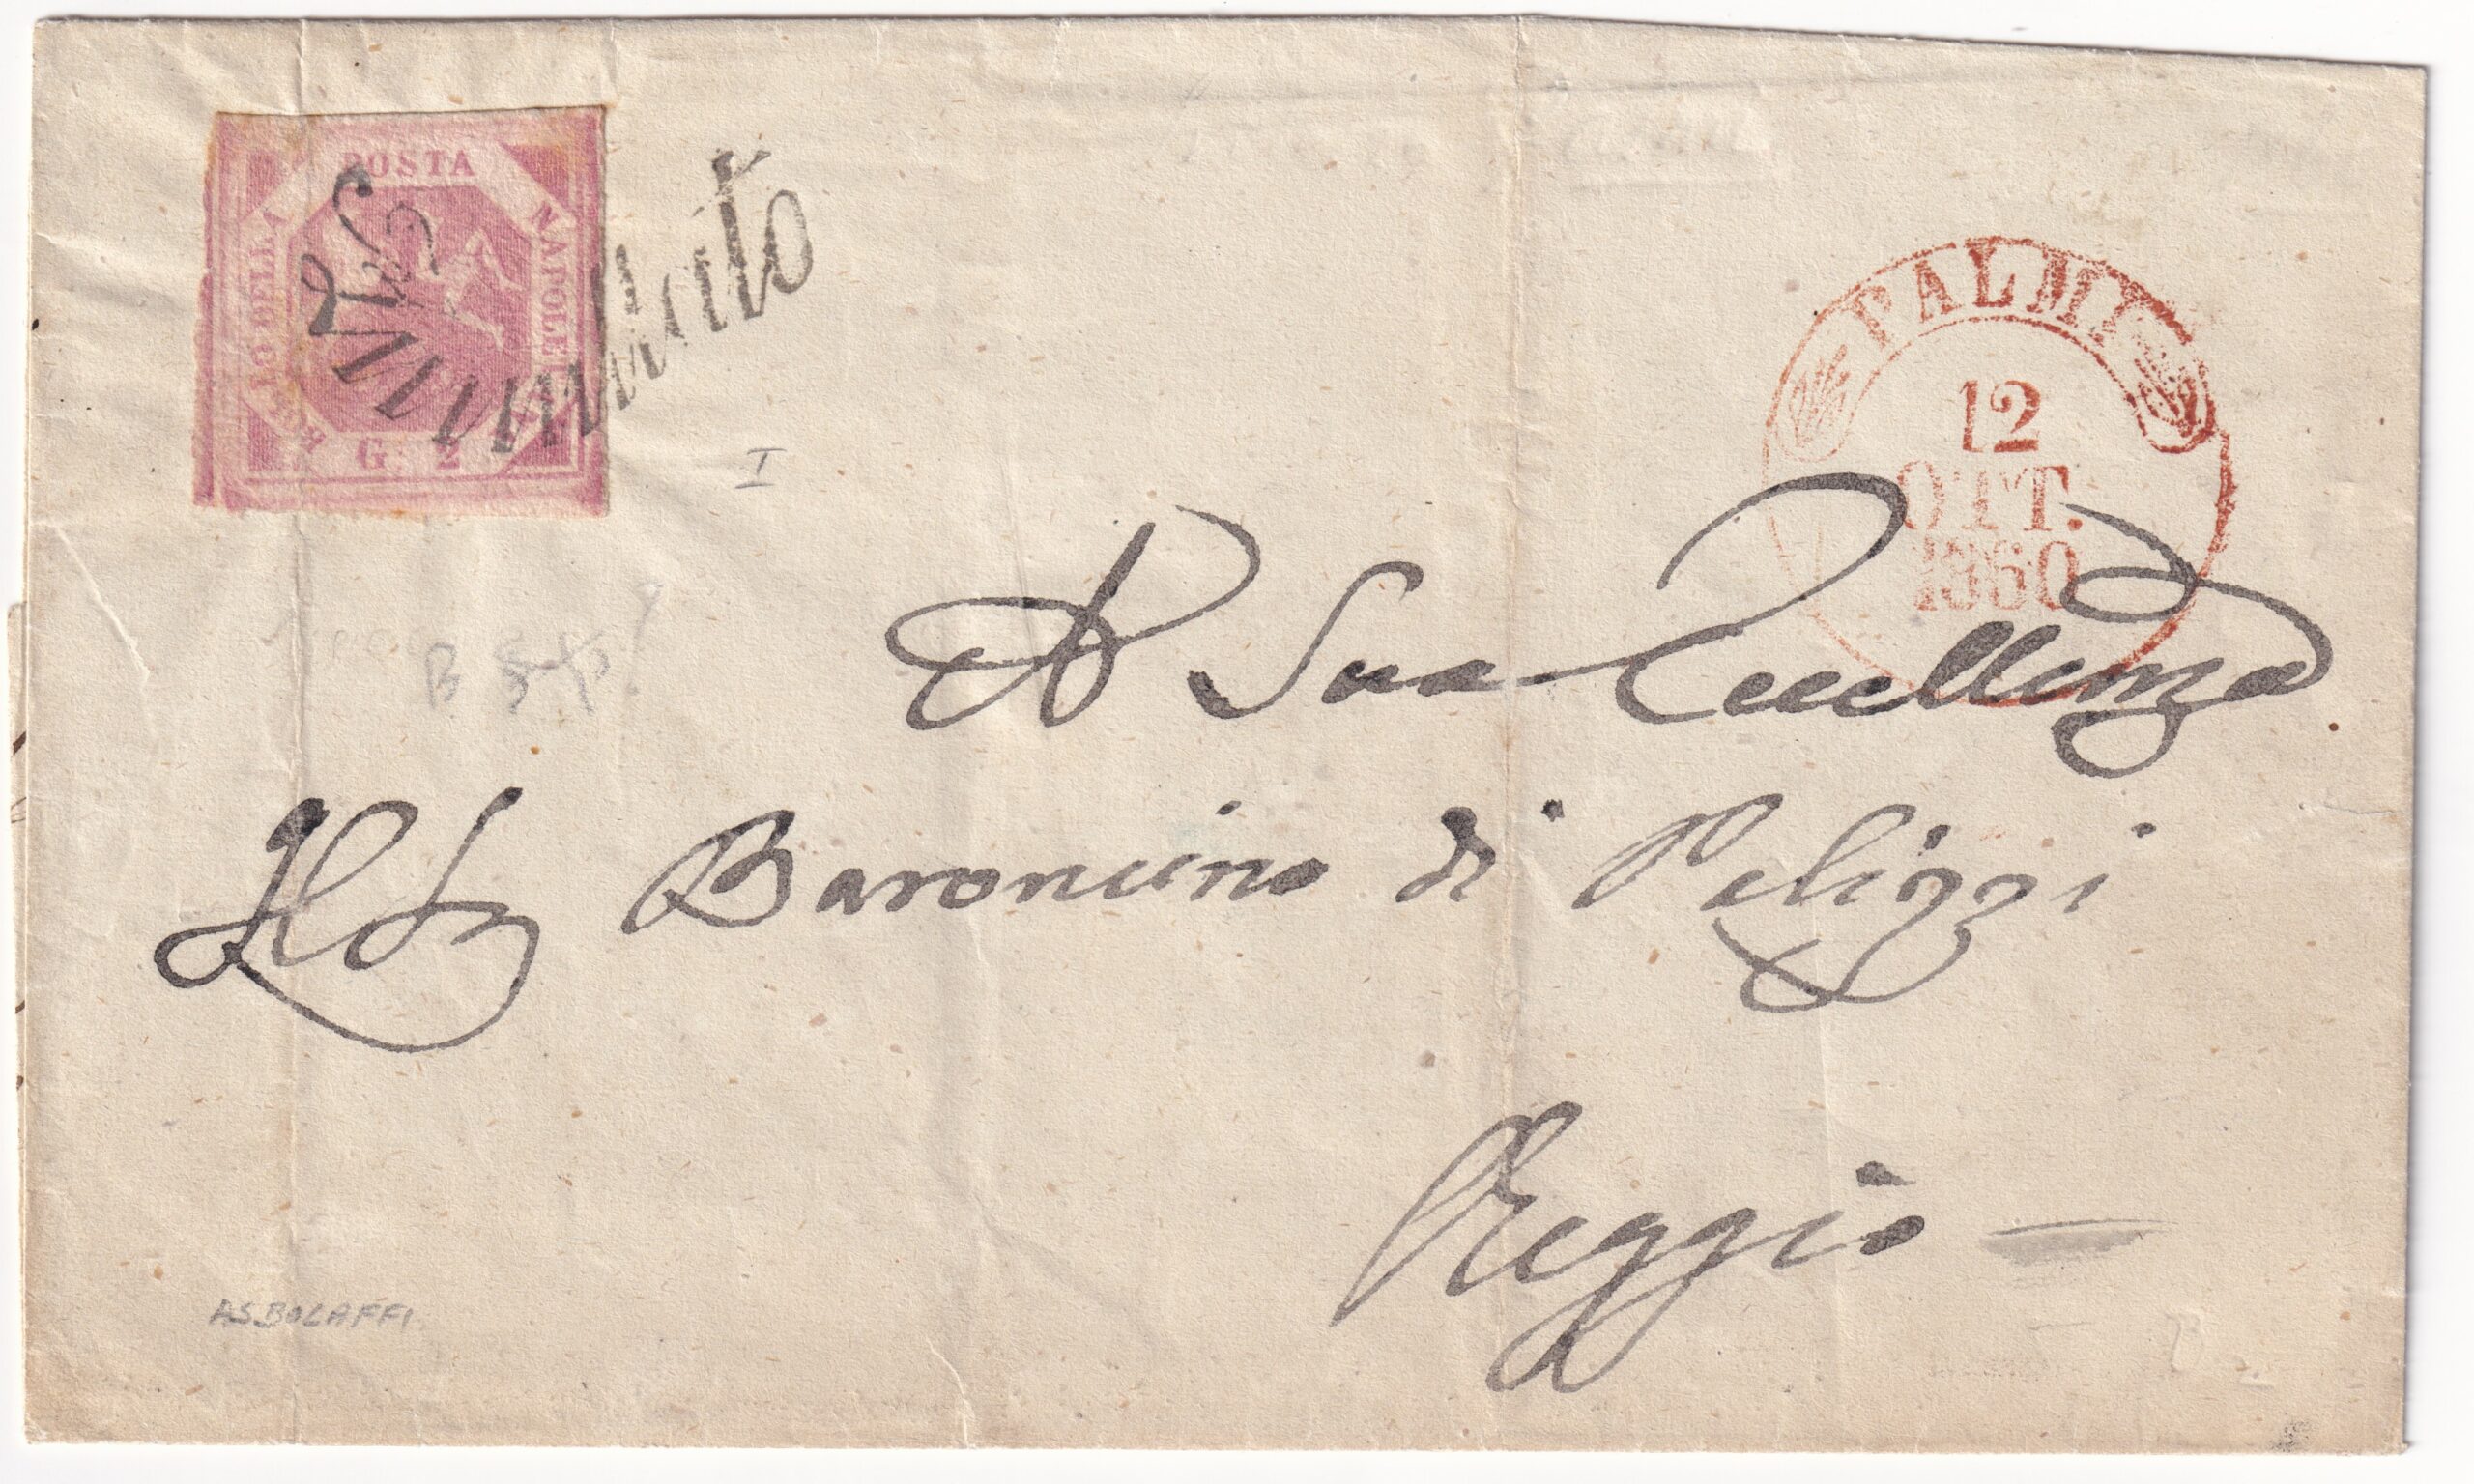 POSTA
NAPOLETANA
BOLLO DELLA
G. 2
Annullato
PALMI
12
OTT.
1860
I
A Sua Eccellenza
Il Sr Baroncino di Palizzi
Reggio
AS.BOLAFFI